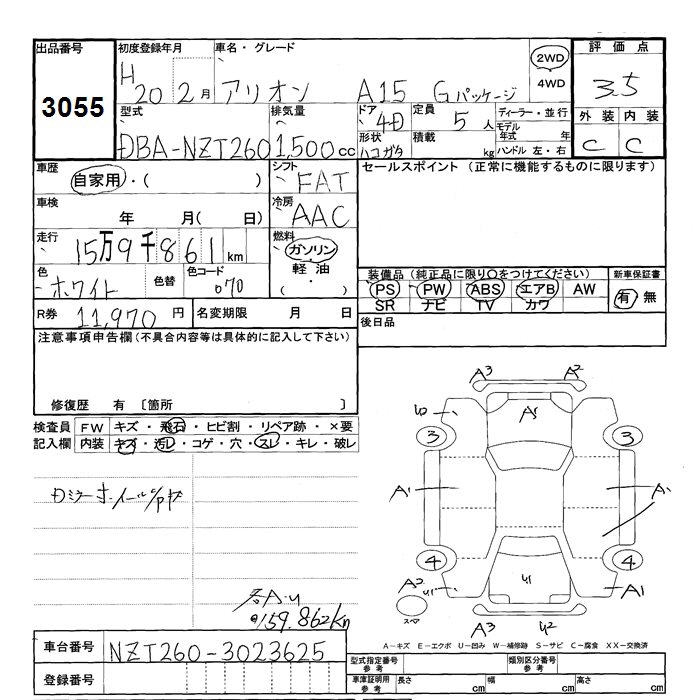 出品番号
3055
初度登録年月
H 20 2月
車名・グレード
アリオン A15 Gパッケージ
2WD
4WD
評価点
3.5
型式
DBA-NZT260
排気量
1,500cc
ドア
4D
形状
ハコガタ
定員
5人
積載
kg
ディーラー・並行
モデル年式 年
ハンドル 左・右
外装 内装
C C
車歴
自家用・( )
シフト
FAT
セールスポイント (正常に機能するものに限ります)
車検
年 月( 日)
冷房
AAC
走行
15万9千861km
燃料
ガソリン
軽油
( ・ )
色
ホワイト
色替
色コード
070
装備品(純正品に限り〇をつけてください)
PS PW ABS エアB AW
SR ナビ TV カワ
新車保証書
有 無
R券 11,970円
名変期限 月 日
後日品
注意事項申告欄(不具合内容等は具体的に記入して下さい)
修復歴 有 〔箇所 〕
検査員 FW キズ・飛石・ヒビ割・リペア跡・×要
記入欄 内装 キズ・汚レ・コゲ・穴・スレ・キレ・破レ
A3 A2
A5
3 3
A1 A1
4 4
A2
U1
U1
A1
スペア
A3 U2
各A.U
159.862km
A-キズ E-エクボ U-凹み W-補修跡 S-サビ C-腐食 XX-交換済
車台番号 NZT260-3023625
登録番号
型式指定番号 参考
類別区分番号 参考
車庫証明用 参考
長さ cm 幅 cm 高さ cm